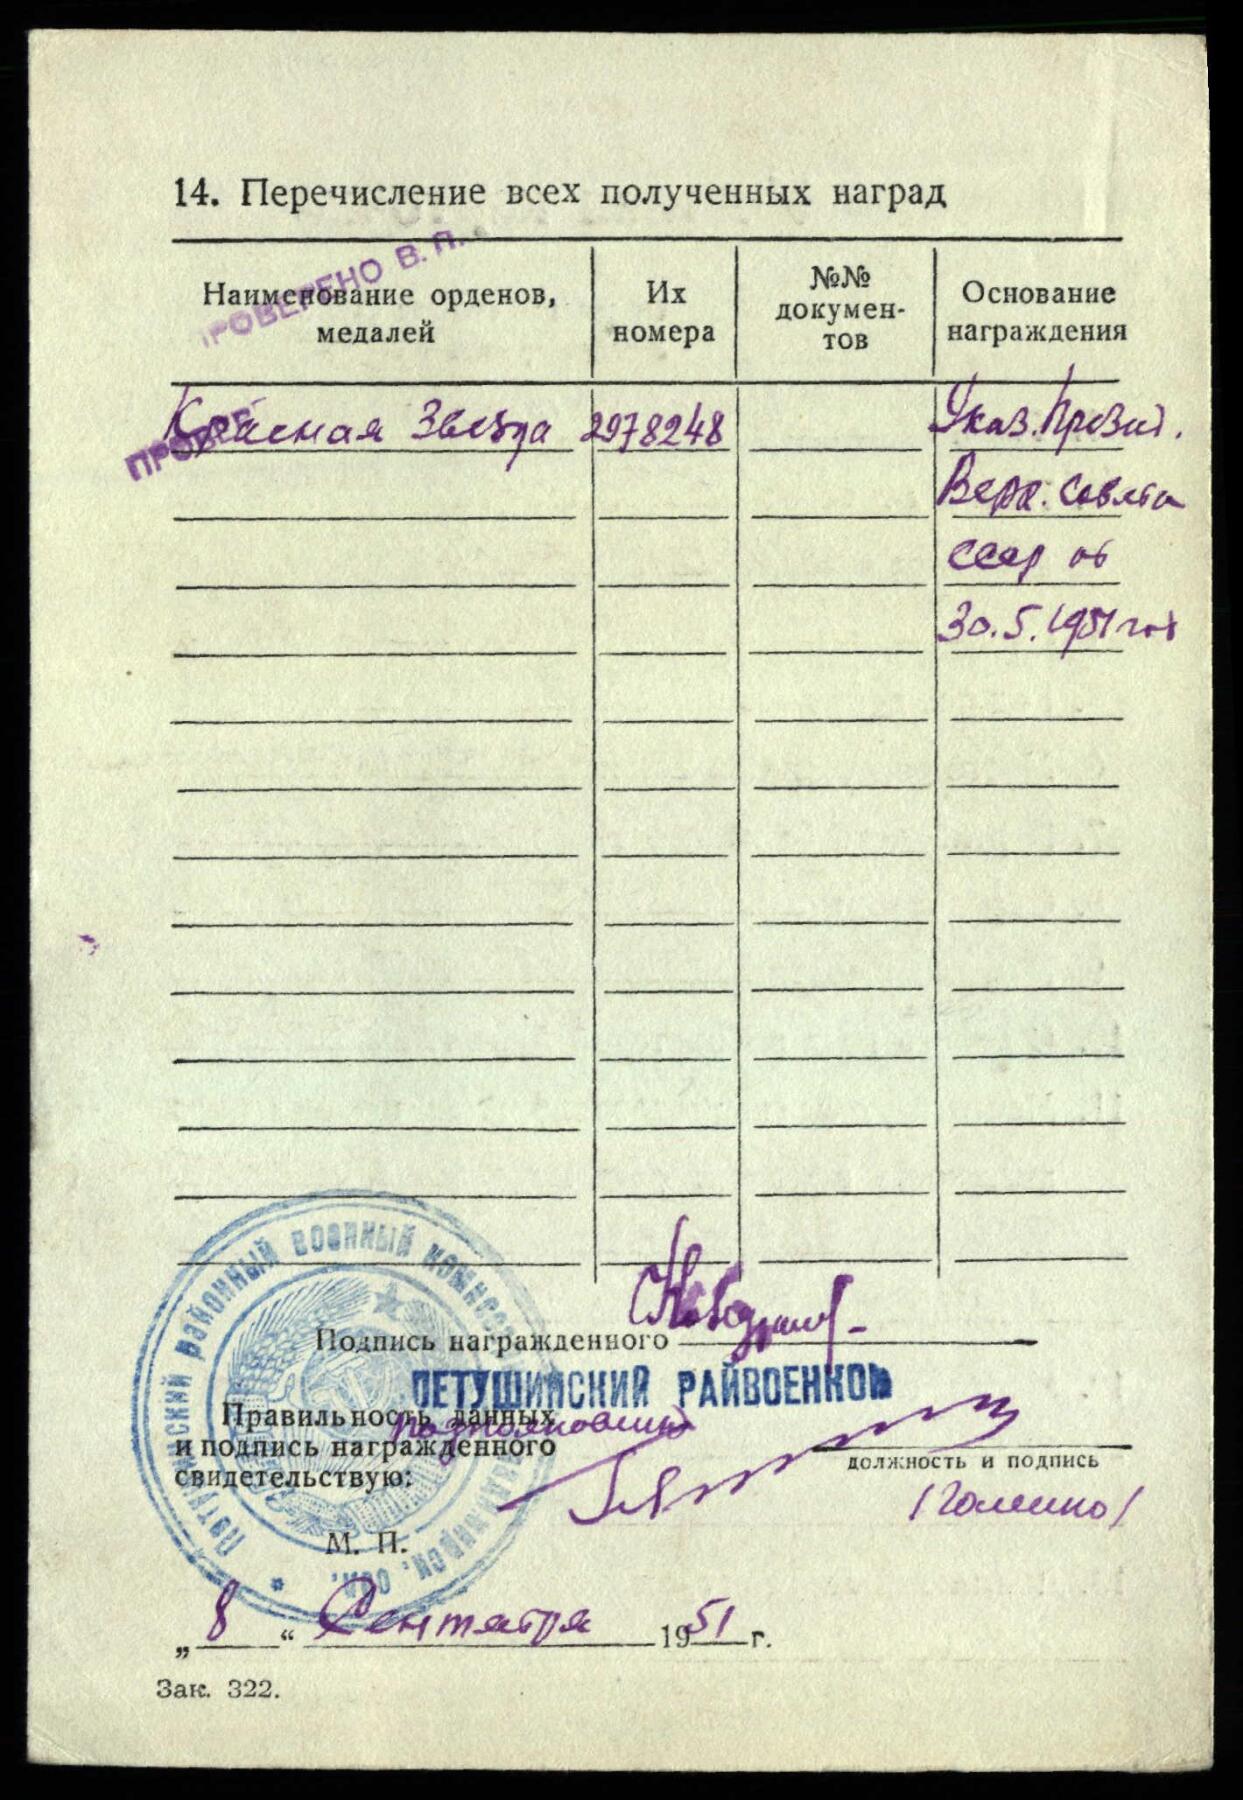 14. Перечисление всех полученных наград
ПРОВЕРЕНО В. П.
Наименование орденов, медалей
Их номера
№№ докумен- тов
Основание награждения
ПРОВЕРЕ
Красная Звезда 2978248 Указ. Презид.
Верх. Совета
СССР от
30.5.1951 год
Петушинский районный военный комиссариат Владимирск. обл.
Подпись награжденного
ПЕТУШИНСКИЙ РАЙВОЕНКОМ
Правильность данных
подполковник
и подпись награжденного
свидетельствую:
должность и подпись
М. П.
„ 8 “ Сентября 1951 г.
Зак. 322.